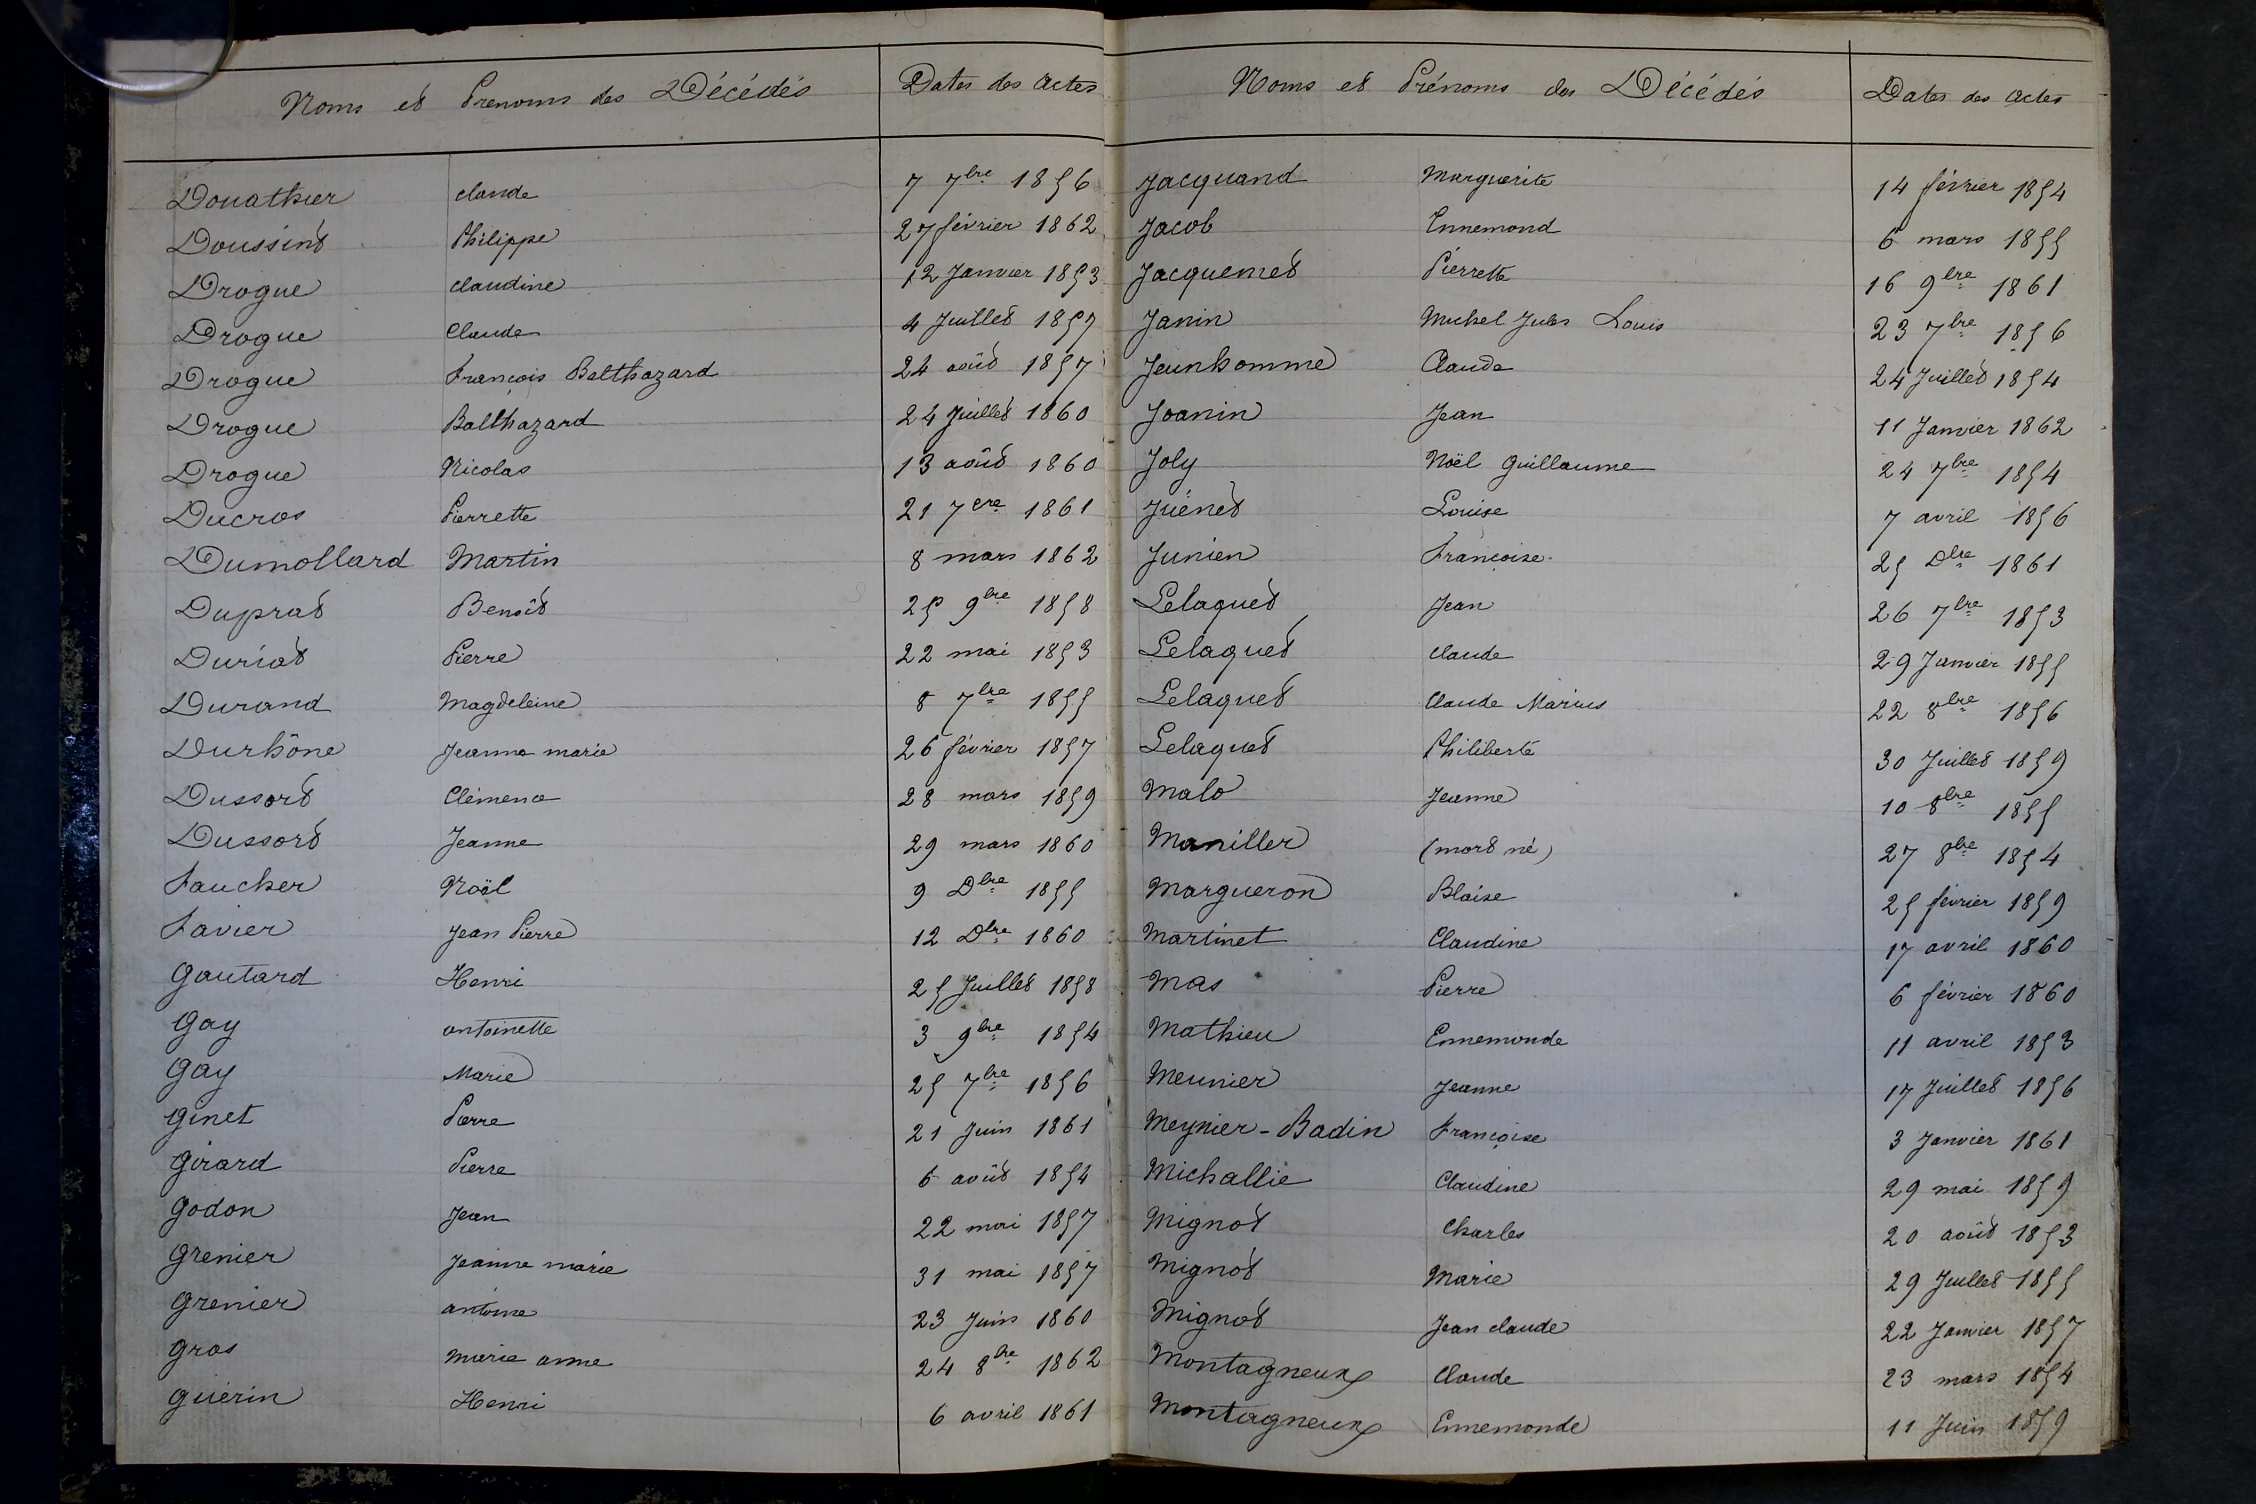 Noms et Prenoms des Décédés Dates des Actes
Douathier Claude 7 7bre 1856
Doussint Philippe 27 février 1862
Drogue Claudine 12 Janvier 1853
Drogue Claude 4 Juillet 1857
Drogue François Balthazard 24 août 1857
Drogue Balthazard 24 Juillet 1860
Drogue Nicolas 13 août 1860
Ducros Pierrette 21 7bre 1861
Dumollard Martin 8 mars 1862
Duprat Benoît 25 9bre 1858
Duriat Pierre 22 mai 1853
Durand Magdeleine 8 7bre 1855
Durhône Jeanne marie 26 février 1857
Dussort Clémence 28 mars 1859
Dussort Jeanne 29 mars 1860
Faucher Noël 9 Dbre 1855
Favier Jean Pierre 12 Dbre 1860
Gautard Henri 25 Juillet 1858
Gay antoinette 3 9bre 1854
Gay Marie 25 7bre 1856
Ginet Pierre 21 Juin 1861
Girard Pierre 6 août 1854
Godon Jean 22 mai 1857
Grenier Jeanne marie 31 mai 1857
Grenier antoine 23 Juin 1860
Gros marie anne 24 8bre 1862
Guérin Henri 6 avril 1861
Noms et Prénoms des Décédés Dates des Actes
Jacquand Marguerite 14 février 1854
Jacob Ennemond 6 mars 1855
Jacquemet Pierrette 16 9bre 1861
Janin Michel Jules Louis 23 7bre 1856
Jeunhomme Claude 24 Juillet 1854
Joanin Jean 11 Janvier 1862
Joly Noël Guillaume 24 7bre 1854
Juénet Louise 7 avril 1856
Junien Françoise 25 Dbre 1861
Lelaquet Jean 26 7bre 1853
Lelaquet Claude 29 Janvier 1855
Lelaquet Claude Marius 22 8bre 1856
Lelaquet Philiberte 30 Juillet 1859
Malo Jeanne 10 8bre 1855
Maniller (mort né) 27 8bre 1854
Margueron Blaise 25 février 1859
Martinet Claudine 17 avril 1860
Mas Pierre 6 février 1860
Mathieu Ennemonde 11 avril 1853
Meunier Jeanne 17 Juillet 1856
Meynier-Badin Françoise 3 Janvier 1861
Michallie Claudine 29 mai 1859
Mignot Charles 20 août 1853
Mignot Marie 29 Juillet 1855
Mignot Jean Claude 22 Janvier 1857
Montagneux Claude 23 mars 1854
Montagneux Ennemonde 11 Juin 1859